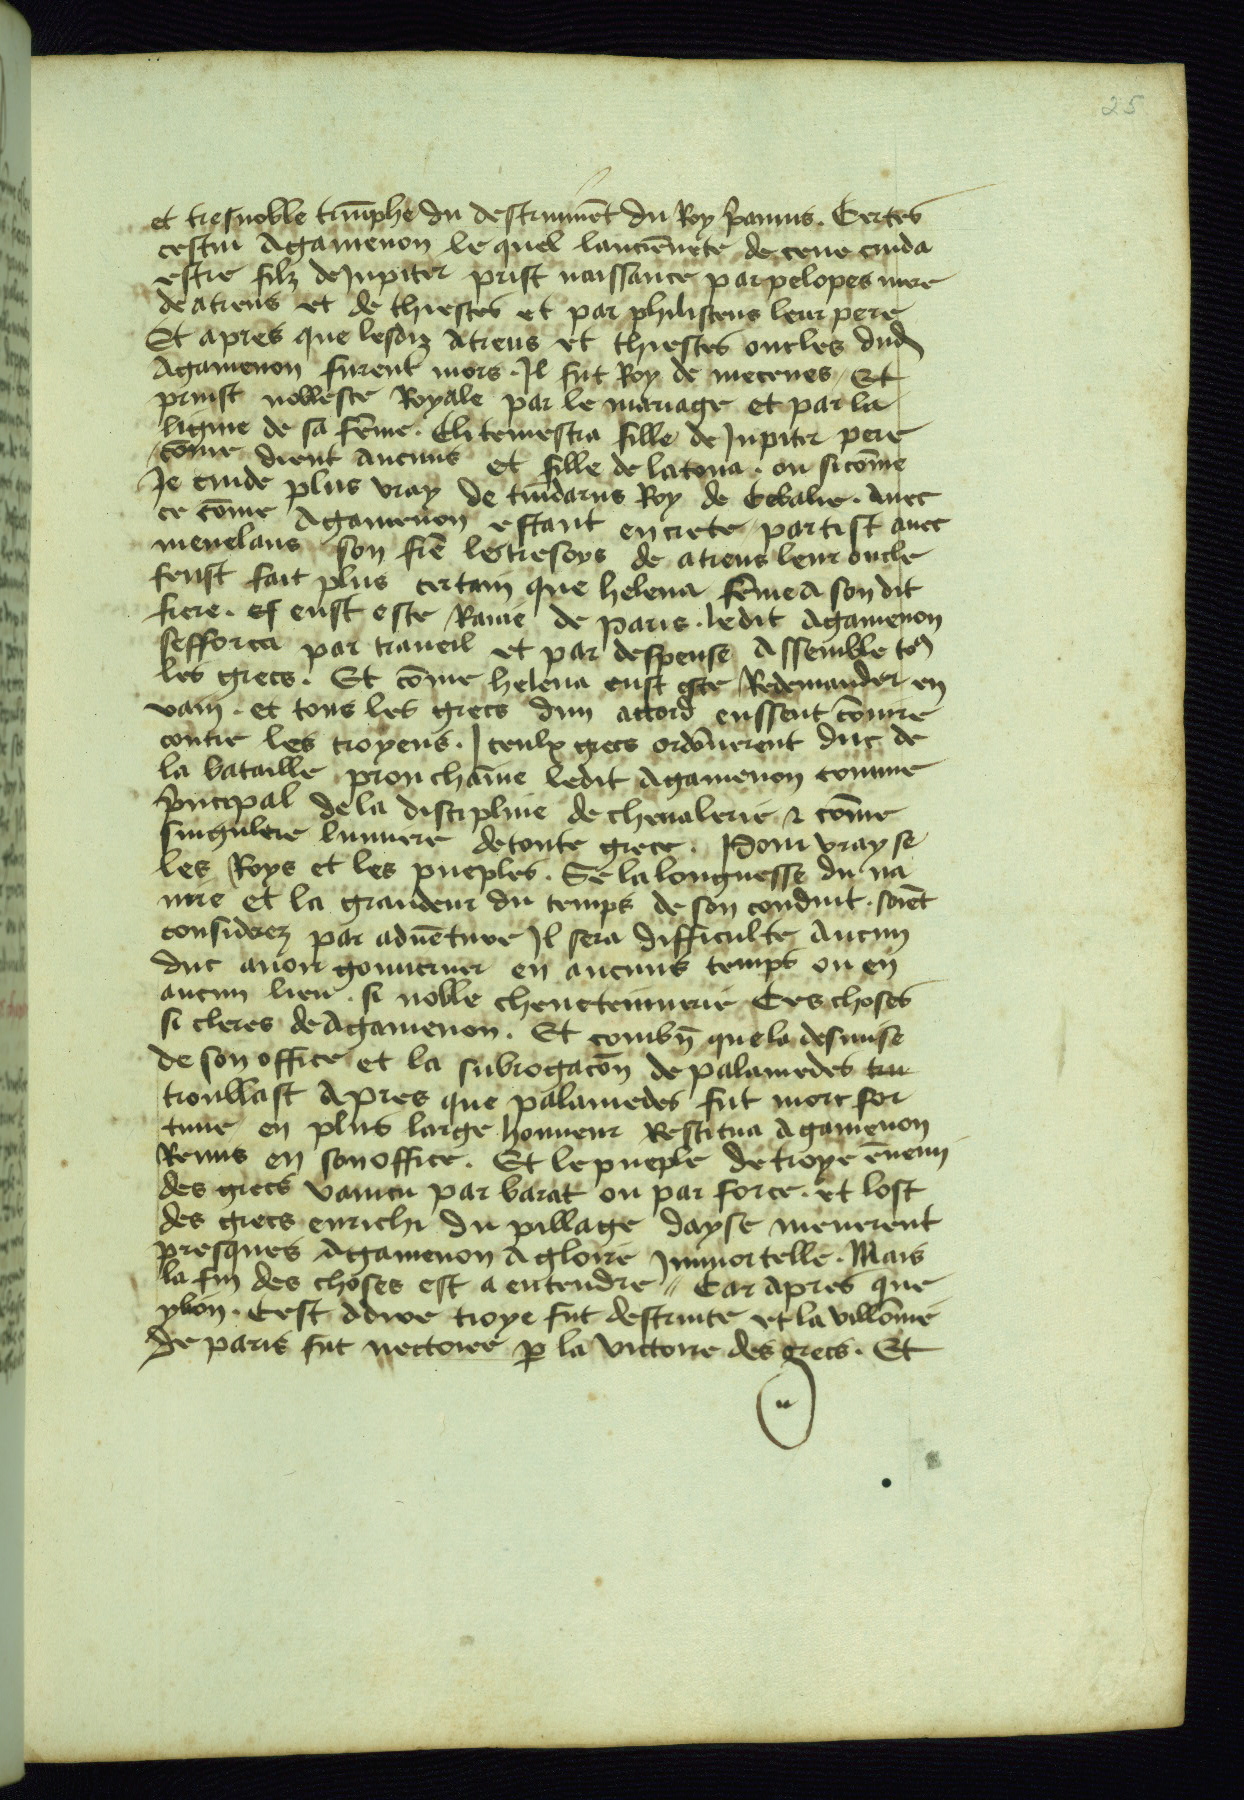 25
et tresnoble triūphe du destruimēt du Roy p̄amus. Certes
cestui Agamenon le quel lanciēnete de ceue cuida
estre filz de Jupiter prist naissance par pelopes mere
de atreus et de thiestes et par philistens leur pere
Et apres que lesdiz Atreus et thiestes oncles dud
Agamenon furent mors. Il fut Roy de mecenes. Et
prinst noblesse Royale par le mariage et par la
ligne de sa fēme. Clitemestra fille de Jupiter pere
cōme dient Aucuns et fille de latona. ou si cōme
Je cuide plus vray de tindarus Roy de Oebalie. Auec
ce cōme Agamenon estant en crete partist auec
menelaus son fr̄e les tresors de atreus leur oncle
feust fait plus certain que helena fēme A son dit
frere. eust este Rauie de paris. ledit Agamenon
sefforca par traueil et par despense Assemble to9
les grecs. Et cōme helena eust este Redemander en
vain. et tous les grecs dun accord eussent cōiure
contre les troyens. Iceulx grecs ordōnerent duc de
la bataille prouchaīne ledit Agamenon comme
p̄ncipal de la discipline de cheualerie & cōme
singuliere lumiere de toute grece. Pour vray se
les Roys et les pueples. Se la longuesse du na
uire et la grandeur du temps de son conduit. soiēt
considerez par aduēture Il sera difficulte Aucun
duc auoir gouuerner en aucuns temps ou en
aucun lieu. si noble cheueteinnerie Ces choses
si cleres de Agamenon. Et combn̄ que la desmise
de son office et la subrogacōn de palamedes tru
troublast Apres que palamedes fut mort for
tune en plus large honneur Restitua Agamenon
Remis en son office. Et le pueple de troye ēnemi
des grecs vaincu par barat ou par force. et lost
des grecs enrichi du pillage dayse menerent
presques Agamenon A gloire Jmmortelle. Mais
la fin des choses est a entendre // Car Apres que
ylion. Cest A dire troye fut destruite et la villōnie
de paris fut nectoiee p̱ la victoire des grecs. Et